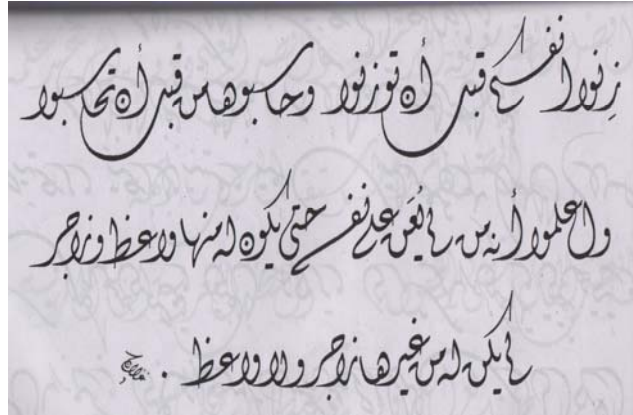 زنوا أنفسكم قبل أن توزنوا وحاسبوها من قبل أن تحاسبوا
واعلموا أنه من لم يُعَن على نفسه حتى يكون له منها واعظ وزاجر
لم يكن له من غيرها زاجر ولا واعظ .